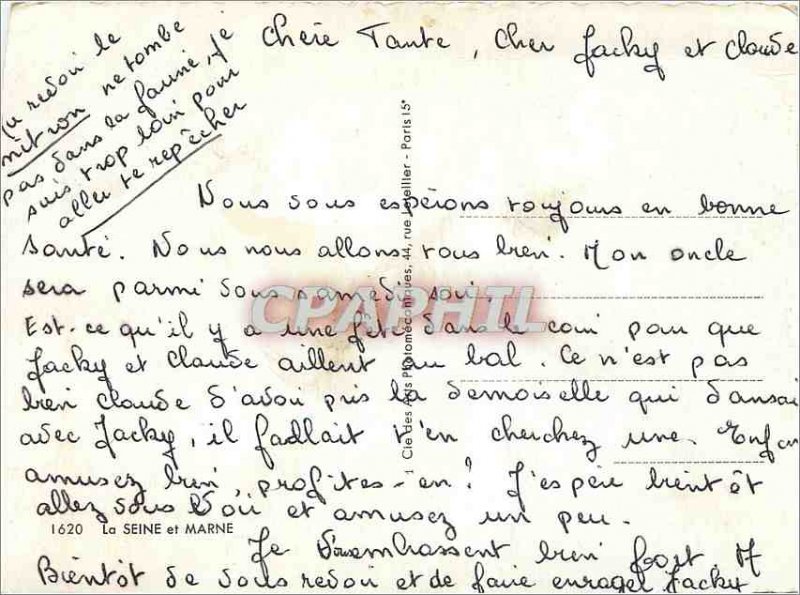 Chère Tante, Cher Jacky et Claude
au revoir le
mitron ne tombe
pas dans la farine, je
suis trop loin pour
aller te repêcher
Nous vous espérons toujours en bonne
santé. Nous nous allons tous bien. Mon oncle
sera parmi vous samedi soir.
Est-ce qu'il y a une fête dans le coin pour que
Jacky et Claude aillent au bal. Ce n'est pas
bien Claude d'avoir pris la demoiselle qui dansai
avec Jacky, il fadlait t'en cherchez une. Enfin
amusez bien, profites-en! J'espère bientôt
allez vous voir et amusez un peu.
Je vous embrassent bien fort. M
Bientôt de vous revoir et de faire enrager Jacky
1620 La SEINE et MARNE
1 Cie des Arts Photomécaniques, 44, rue Letellier - Paris 15e
CPAPHIL